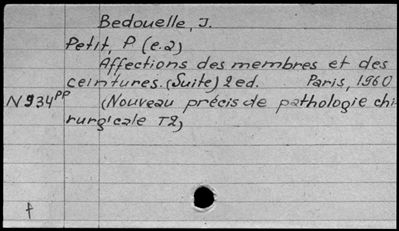 Bedouelle, J.
Petit, P (e.a)
Affections des membres et des
ceintures. (Suite) 2ed. Paris, 1960
N934PP (Nouveau précis de pathologie chi
rurgicale T2)
f